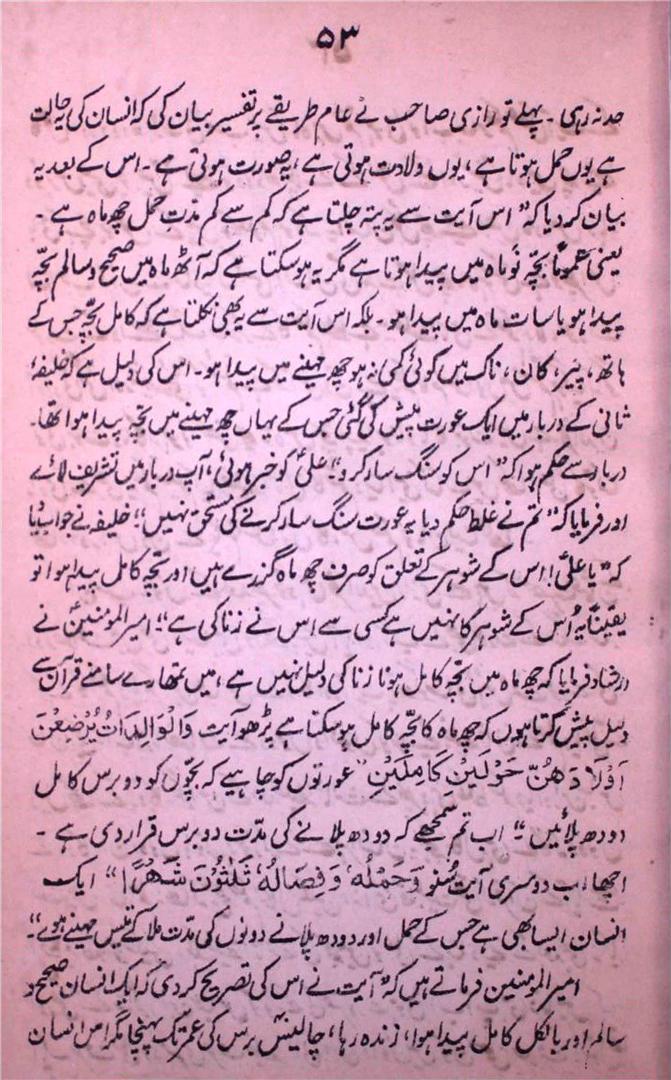 ۵۳
حد نہ رہی ۔ پہلے تو رازی صاحب نے عام طریقے پر تفسیر بیان کی کہ انسان کی یہ حالت
ہے یوں حمل ہوتا ہے ، یوں ولادت ہوتی ہے ، یہ صورت ہوتی ہے ۔ اس کے بعد یہ
بیان کر دیا کہ " اس آیت سے یہ پتہ چلتا ہے کہ کم سے کم مدّتِ حمل چھ ماہ ہے ۔
یعنی عموماً بچّہ نَو ماہ میں پیدا ہوتا ہے مگر یہ ہو سکتا ہے کہ آٹھ ماہ میں صحیح و سالم بچّہ
پیدا ہو یا سات ماہ میں پیدا ہو ۔ بلکہ اس آیت سے یہ بھی نکلتا ہے کہ کامل بچّہ جس کے
ہاتھ ، پیَر ، کان ، ناک میں کوئی کمی نہ ہو چھ مہینے میں پیدا ہو ۔ اس کی دلیل ہے کہ خلیفہٴ
ثانی کے دربار میں ایک عورت پیش کی گئی جس کے یہاں چھ مہینے میں بچّہ پیدا ہوا تھا ۔
دربار سے حکم ہوا کہ " اس کو سنگ سار کرو " علیؑ کو خبر ہوئی ، آپ دربار میں تشریف لائے
اور فرمایا کہ " تم نے غلط حکم دیا یہ عورت سنگ سار کرنے کی مستحق نہیں " خلیفہ نے جواب دیا
کہ " یا علیؑ ! اس کے شوہر کے تعلق کو صرف چھ ماہ گزرے ہیں اور بچّہ کامل پیدا ہوا تو
یقیناً یہ اُس کے شوہر کا نہیں ہے کسی سے اس نے زنا کی ہے " امیر المومنینؑ نے
ارشاد فرمایا کہ چھ ماہ میں بچّہ کامل ہونا زنا کی دلیل نہیں ہے ، میں تمھارے سامنے قرآن سے
دلیل پیش کرتا ہوں کہ چھ ماہ کا بچّہ کامل ہو سکتا ہے پڑھو آیت وَالْوَالِدَاتُ یُرْضِعْنَ
اَوْلَادَهُنَّ حَوْلَیْنِ کَامِلَیْنِ " عورتوں کو چاہیے کہ بچّوں کو دو برس کامل
دودھ پلائیں " اب تم سمجھے کہ دودھ پلانے کی مدّت دو برس قرار دی ہے ۔
اچھا اب دوسری آیت سُنو وَحَمْلُہٗ وَفِصَالُہٗ ثَلٰثُوْنَ شَهْرًا " ایک
انسان ایسا بھی ہے جس کے حمل اور دودھ پلانے دونوں کی مدّت ملا کے تیس مہینے ہوے "
امیر المومنین فرماتے ہیں کہ " آیت نے اس کی تصریح کر دی کہ ایک انسان صحیح و
سالم اور بالکل کامل پیدا ہوا ، زندہ رہا ، چالیس برس کی عمر تک پہنچا مگر اس انسان